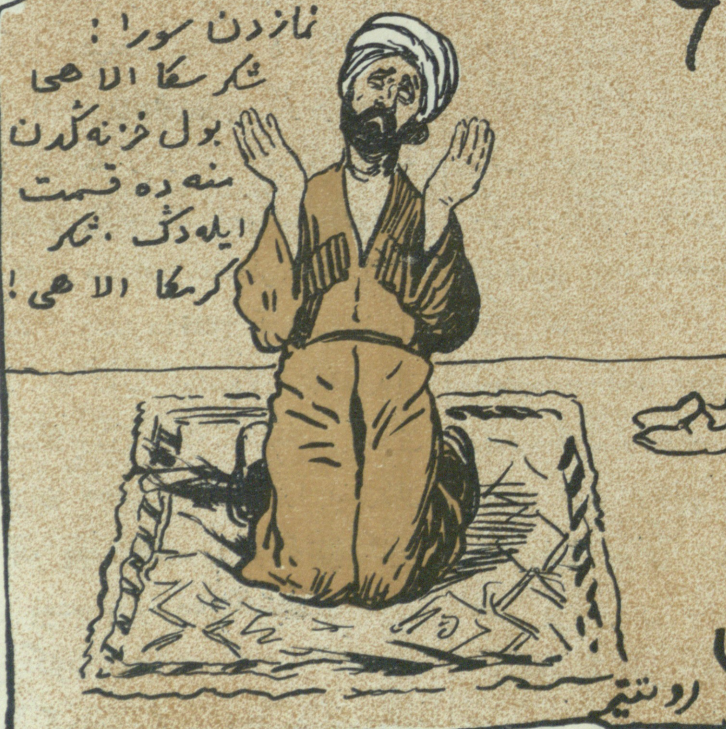 نمازدن سورا :
شکر سکا الاهی
بول خزنه‌ڭدن
منه ده قسمت
ایله‌دڭ . شکر
کرسکا الاهی !
روتتیر